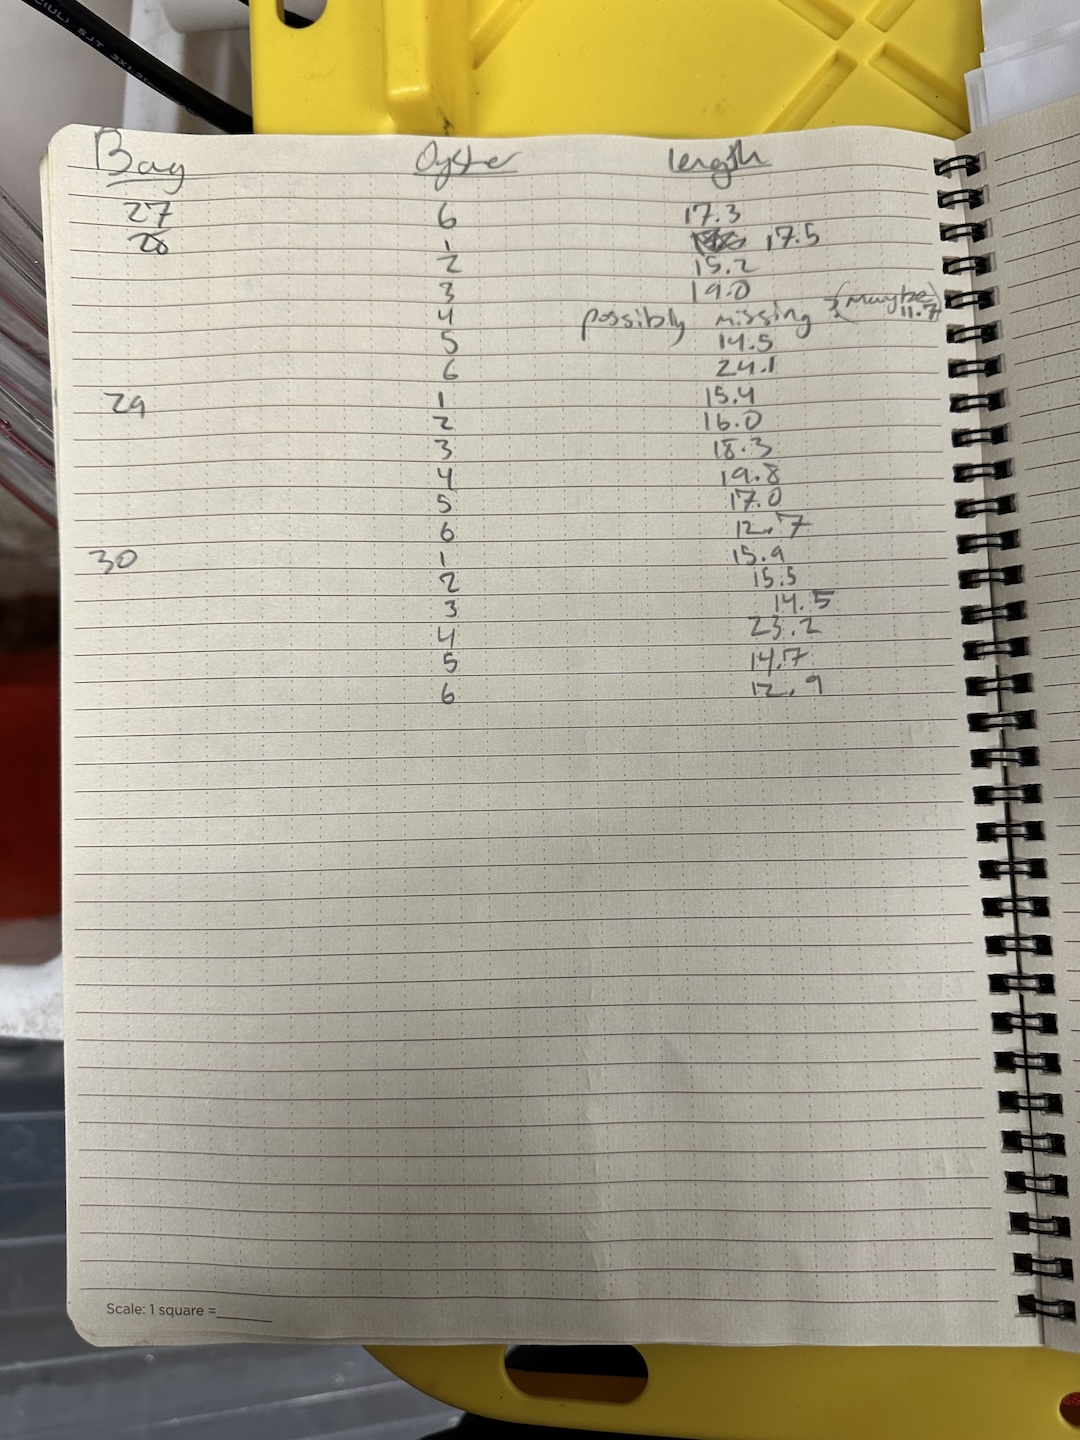 (UL) SJT 3X1.31
Bag Oyster length
27 6 17.3
28 1 17.5
2 15.2
3 19.0
4 possibly missing ? (maybe 11.7)
5 14.5
6 24.1
29 1 15.4
2 16.0
3 18.3
4 19.8
5 17.0
6 12.7
30 1 15.9
2 15.5
3 14.5
4 23.2
5 14.7
6 12.9
Scale: 1 square =